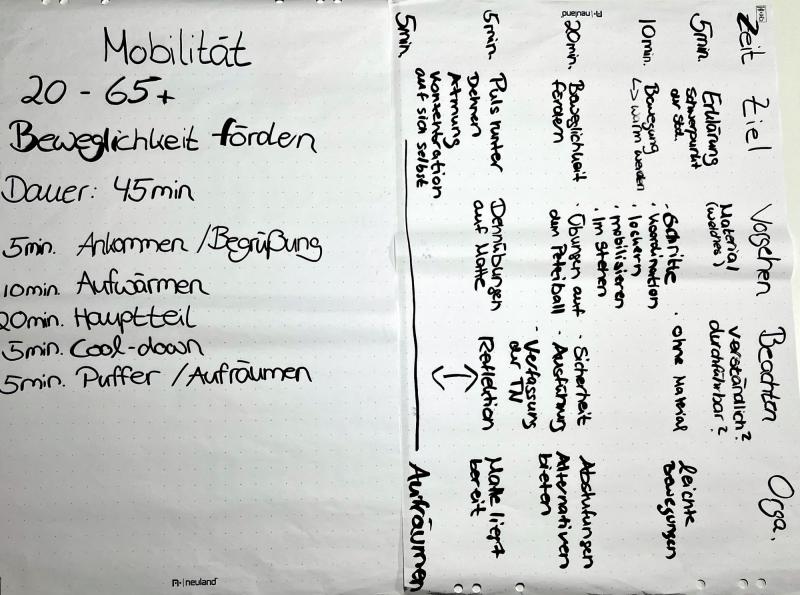 Mobilität
20 - 65+
Beweglichkeitförden
Dauer: 45min
5min. Ankommen / Begrüßung
10min. Aufwärmen
20min. Hauptteil
5min. Cool-down
5min. Puffer / Aufräumen
neuland
Zeit Ziel Vorgehen Beachten Orga.
5min.
Erklärung
Schwerpunkt
der Std.
Material
(welches)
verständlich?
durchführbar?
10min.
Bewegung
↳ warm werden
· Schritte
· Koordination
· lockern
· mobilisieren
· im Stehen
· ohne Material
leichte
Bewegungen
20min.
Beweglichkeit
förden
· Übungen auf
dem Petziball
· Sicherheit
· Ausführung
· Verfassung
der TN
Abstufungen
Alternativen
bieten
5min.
Puls runter
Dehnen
Atmung
Konzentration
auf sich selbst
Dehnübungen
auf Matte
Reflektion
Matte liegt
bereit
5min
Aufräumen
neuland